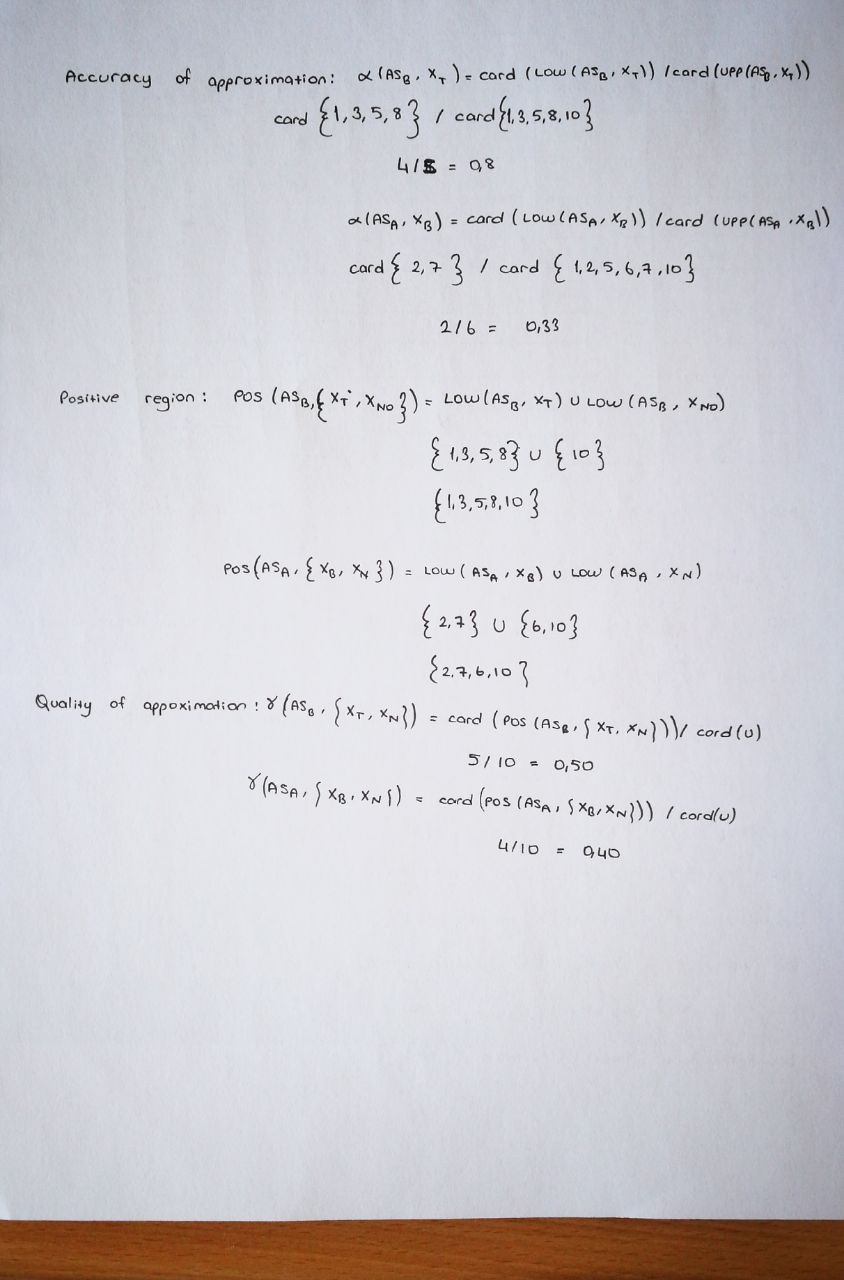 Accuracy of approximation: α (AS_B, X_T) = card (LOW (AS_B, X_T)) / card (UPP (AS_B, X_T))
card {1, 3, 5, 8} / card {1, 3, 5, 8, 10}
4/5 = 0,8
α (AS_A, X_B) = card (LOW (AS_A, X_B)) / card (UPP (AS_A, X_B))
card {2, 7} / card {1, 2, 5, 6, 7, 10}
2/6 = 0,33
Positive region: POS (AS_B, {X_T, X_NO}) = LOW (AS_B, X_T) ∪ LOW (AS_B, X_NO)
{1, 3, 5, 8} ∪ {10}
{1, 3, 5, 8, 10}
POS (AS_A, {X_B, X_N}) = LOW (AS_A, X_B) ∪ LOW (AS_A, X_N)
{2, 7} ∪ {6, 10}
{2, 7, 6, 10}
Quality of appoximation: γ (AS_B, {X_T, X_N}) = card (POS (AS_B, {X_T, X_N})) / card (U)
5/10 = 0,50
γ (AS_A, {X_B, X_N}) = card (POS (AS_A, {X_B, X_N})) / card (U)
4/10 = 0,40